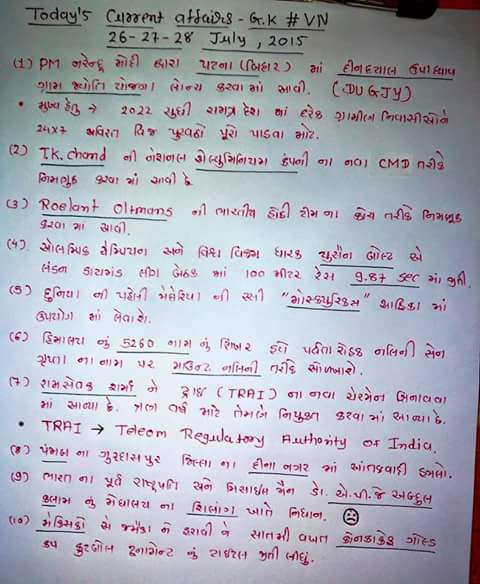 Today's Current affairs - G.K # VN
26-27-28 July, 2015
(1) PM નરેન્દ્ર મોદી દ્વારા પટના (બિહાર) માં દીનદયાલ ઉપાધ્યાય
ગ્રામ જ્યોતિ યોજના લોન્ચ કરવામાં આવી. (DUGJY)
• મુખ્ય હેતુ → 2022 સુધી સમગ્ર દેશ માં દરેક ગ્રામીણ નિવાસીઓને
24x7 અવિરત વિજ પુરવઠો પૂરો પાડવા માટે.
(2) T.K. chand ની નેશનલ એલ્યુમિનિયમ કંપની ના નવા CMD તરીકે
નિમણુક કરવા માં આવી છે
(3) Roelant Oltmans ની ભારતીય હોકી ટીમ ના કોચ તરીકે નિમણૂક
કરવા માં આવી.
(4) ઓલમ્પિક ચેમ્પિયન અને વિશ્વ વિક્રમ ધારક યુસૈન બોલ્ટ એ
લંડન ડાયમંડ લીગ બેઠક માં 100 મીટર રેસ 9.87 sec માં જીતી.
(5) દુનિયા ની પહેલી મેલેરિયા ની રસી "મોસ્ક્યુરિક્સ" આફ્રિકા માં
ઉપયોગ માં લેવાશે.
(6) હિમાલય નું 5260 નામ નું શિખર હવે પર્વતારોહક નલિની સેન
ગુપ્તા ના નામ પર માઉન્ટ નલિની તરીકે ઓળખાશે.
(7) રામસેવક શર્મા ને ટ્રાઈ (TRAI) ના નવા ચેરમેન બનાવવા
માં આવ્યા છે. ત્રણ વર્ષ માટે તેમણે નિયુક્ત કરવા માં આવ્યા છે.
• TRAI → Telecom Regulatory Authority of India.
(૮) પંજાબ ના ગુરદાસપુર જિલ્લા ના દીના નગર માં આંતકવાદી હુમલો.
(૭) ભારત ના પૂર્વ રાષ્ટ્રપતિ અને મિસાઈલ મૈન ડો. એ.પી.જે અબ્દુલ
કલામ નું મેઘાલય ના શિલાંગ ખાતે નિધાન.
(૧૦) મેક્સિકો એ જમૈકા ને હરાવી ને સાતમી વખત કોનકાકેફ ગોલ્ડ
કપ ફુટબોલ ટુનામેન્ટ નું ટાઇટલ જીતી લીધું.